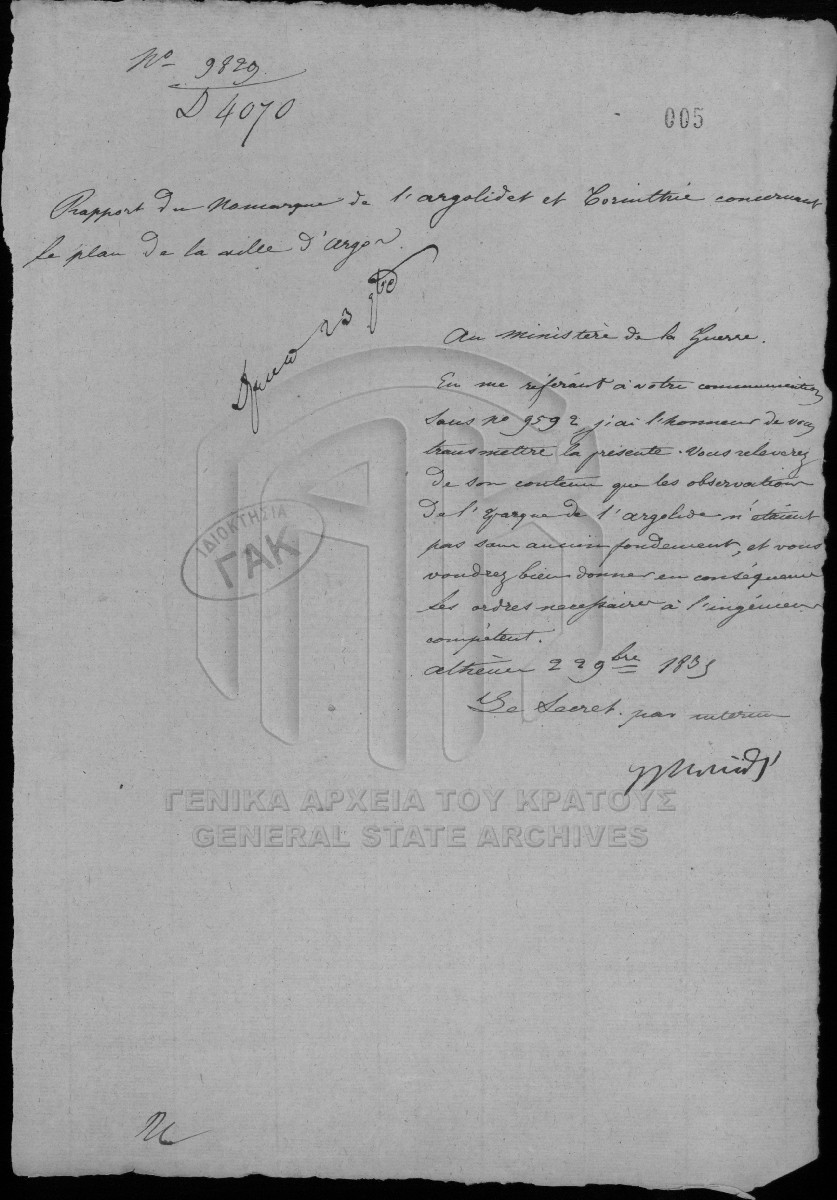 No 9829
D 4070
005
Rapport du Nomarque de l'argolidet et Corinthie concernant
le plan de la ville d'Argos.
23 9bre
Au ministère de la Guerre.
En me referant à votre communication
sous no 9592 j'ai l'honneur de vous
transmettre la présente. Vous releverez
de son contenu que les observations
de l'Eparque de l'argolide n'étaient
pas sans aucun fondement, et vous
voudrez bien donner en conséquence
les ordres necessaires à l'ingénieur
compétent.
athènes 22 9bre 1835
Le Secret. par interim
ΙΔΙΟΚΤΗΣΙΑ
ΓΑΚ
ΓΕΝΙΚΑ ΑΡΧΕΙΑ ΤΟΥ ΚΡΑΤΟΥΣ
GENERAL STATE ARCHIVES